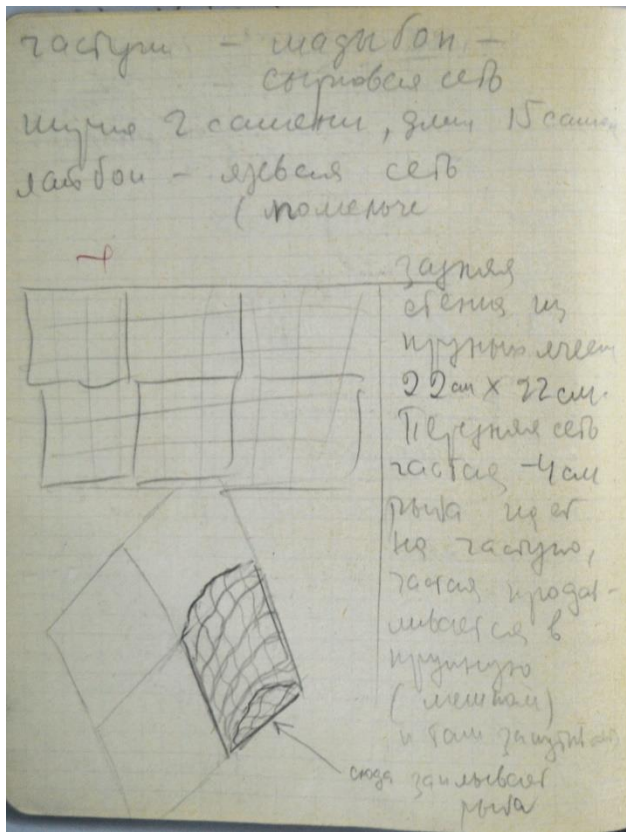 частуги - шадыбон -
сырковая сеть
2 сажени, длин 15 сажен
- язевая сеть
(помельче
задняя
стенка из
крупных ячеек
22см х 22 см.
Передняя сеть
частая - 4 см
рыба идет
на частую,
частая продав-
ливается в
крупную
(мешком)
и там запутывает
сюда заплывает
рыба